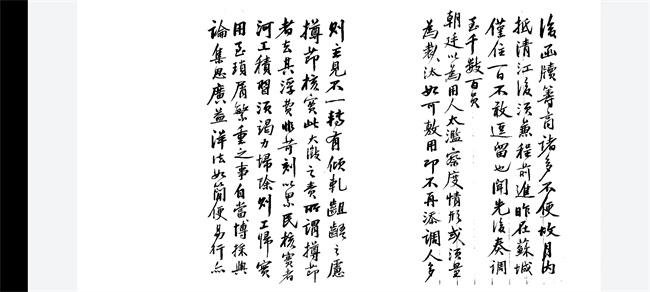 後函牘籌商諸多不便故月內
抵清江後須兼程前進昨在蘇城
僅住一日不敢逗留也聞先後奏調
至千數百員
朝廷以為用人太濫察度情形或須量
為裁汰如可敷用即不再添調人多
則主見不一轉有傾軋齟齬之慮
撙節核實此大澂之責所謂撙節
者去其浮費非苛刻以累民核實者
河工積習須竭力掃除則工歸實
用至瑣屑繁重之事自當博採輿
論集思廣益洋法如簡便易行亦